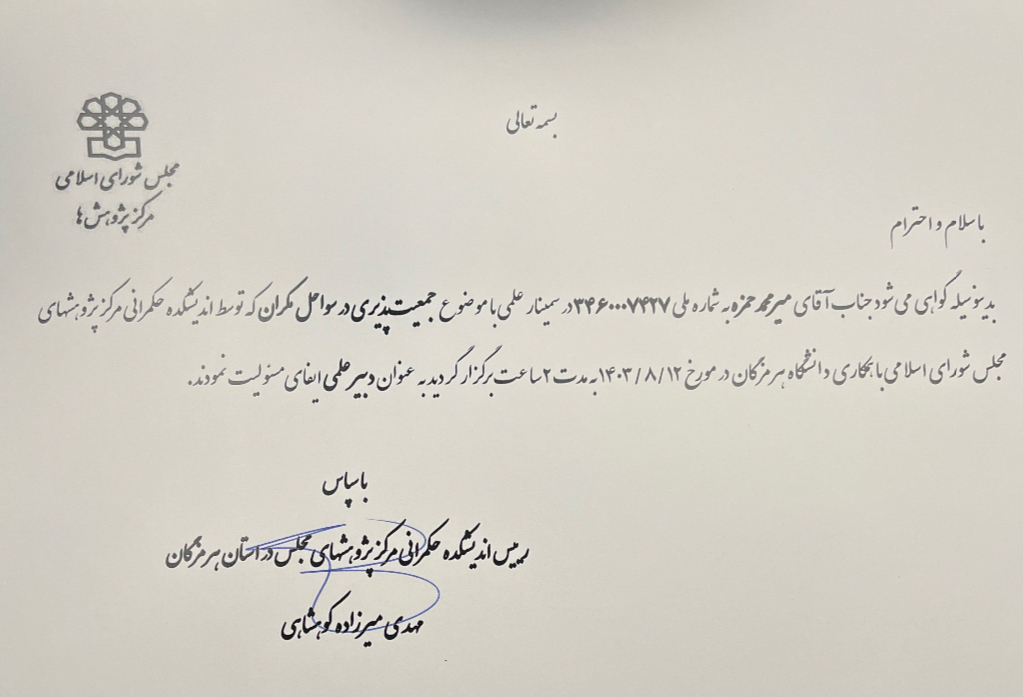 بسمه تعالی
مجلس شورای اسلامی
مرکز پژوهش ها
با سلام و احترام
بدینوسیله گواهی می شود جناب آقای میر محمد حمزه به شماره ملی ۳۴۶۰۰۰۷۴۲۷ در سمینار علمی با موضوع جمعیت پذیری در سواحل مکران که توسط اندیشکده حکمرانی مرکز پژوهشهای
مجلس شورای اسلامی با همکاری دانشگاه هرمزگان در مورخ ۱۴۰۳/۸/۱۲ به مدت ۲ ساعت برگزار گردید به عنوان دبیر علمی ایفای مسئولیت نمودند.
با سپاس
رییس اندیشکده حکمرانی مرکز پژوهشهای مجلس در استان هرمزگان
مهدی میرزاده کوهشاهی